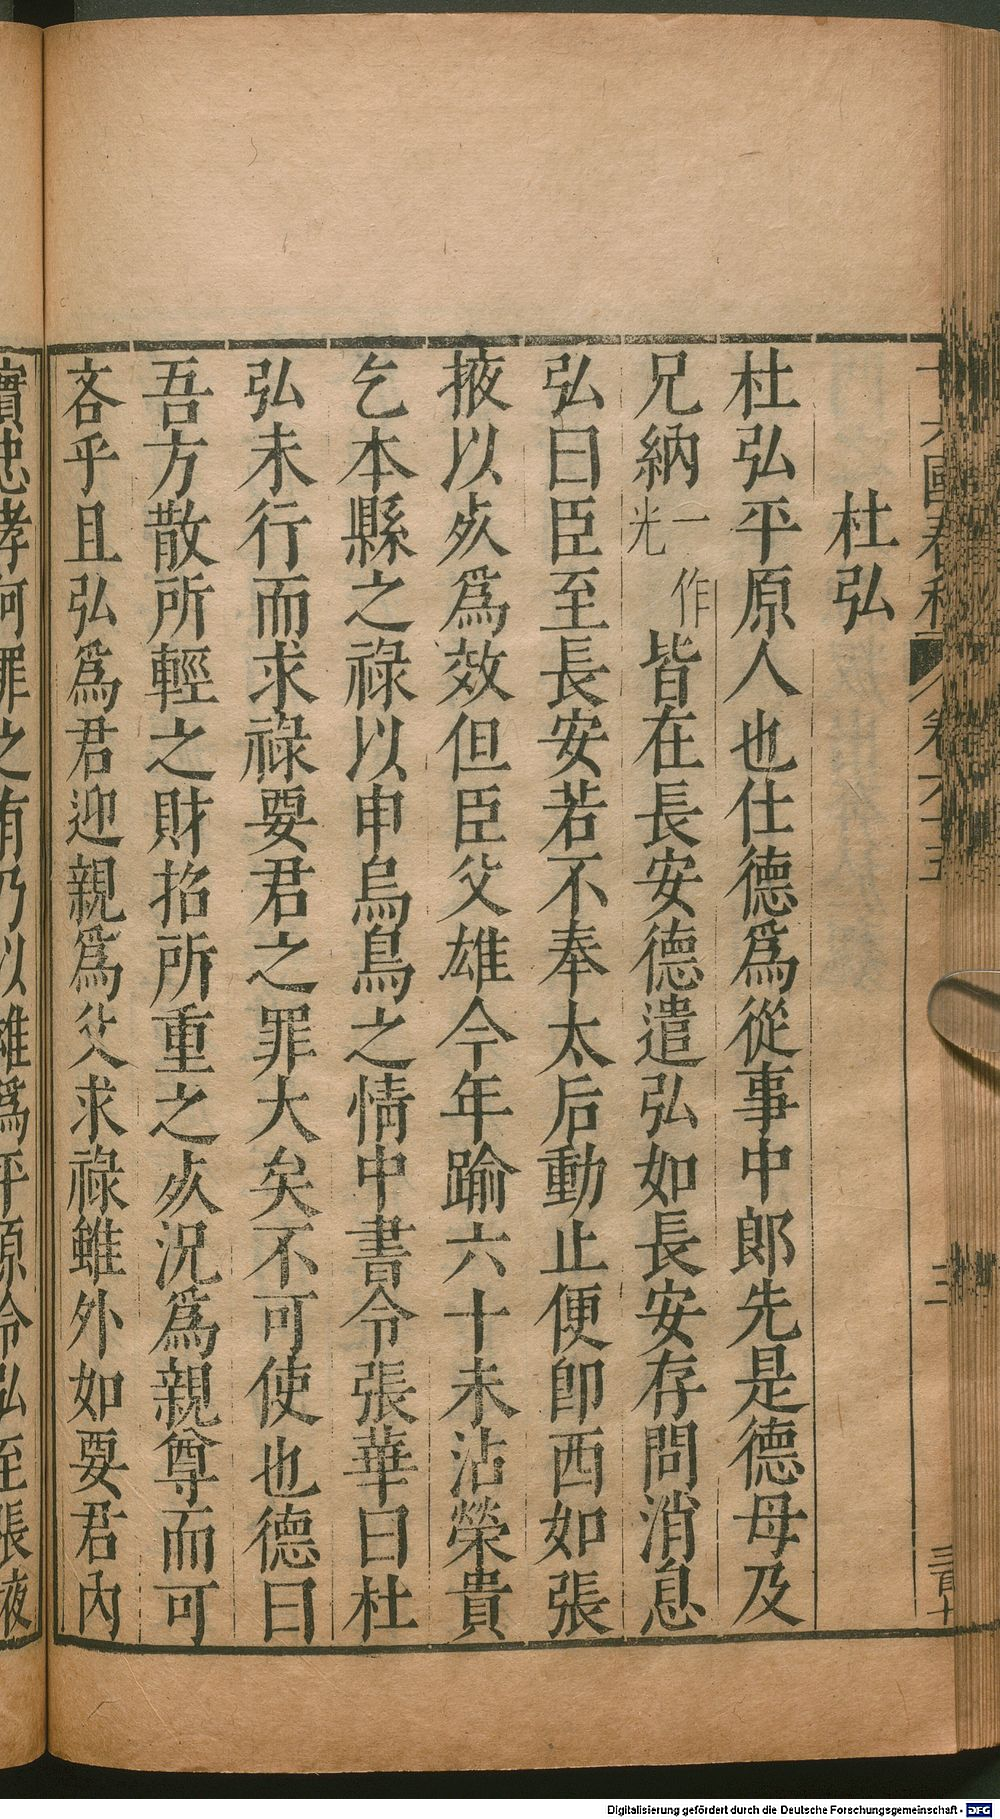 十六國春秋 卷六十五 三
杜弘
杜弘平原人也仕德爲從事中郎先是德母及
兄納一作光皆在長安德遣弘如長安存問消息
弘曰臣至長安若不奉太后動止便卽西如張
掖以死爲效但臣父雄今年踰六十未沾榮貴
乞本縣之祿以申烏鳥之情中書令張華曰杜
弘未行而求祿要君之罪大矣不可使也德曰
吾方散所輕之財招所重之死况爲親尊而可
吝乎且弘爲君迎親爲父求祿雖外如要君內
實忠孝何罪之有乃以雄爲平原令弘至張掖
Digitalisierung gefördert durch die Deutsche Forschungsgemeinschaft - DFG